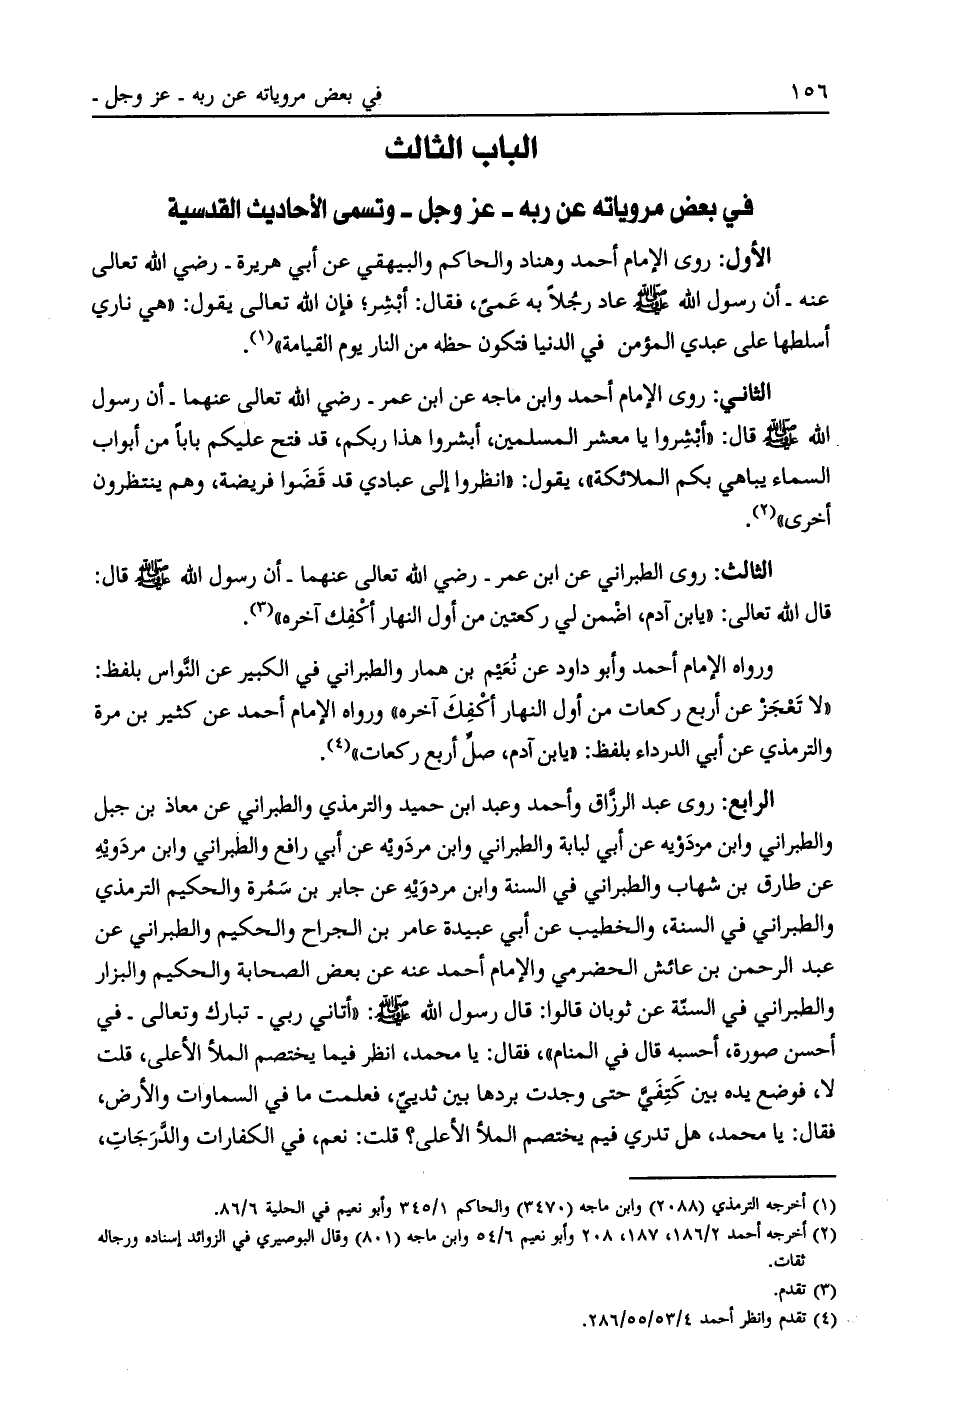 ١٥٦
في بعض مروياته عن ربه - عز وجل -
الباب الثالث
في بعض مروياته عن ربه - عز وجل - وتسمى الأحاديث القدسية
الأول: روى الإمام أحمد وهناد والحاكم والبيهقي عن أبي هريرة - رضي الله تعالى
عنه - أن رسول الله ﷺ عاد رجُلاً به عَمىً، فقال: أبْشِر؛ فإن الله تعالى يقول: «هي ناري
أسلطها على عبدي المؤمن في الدنيا فتكون حظه من النار يوم القيامة»(١).
الثاني: روى الإمام أحمد وابن ماجه عن ابن عمر - رضي الله تعالى عنهما - أن رسول
الله ﷺ قال: «أبْشِروا يا معشر المسلمين، أبشروا هذا ربكم، قد فتح عليكم باباً من أبواب
السماء يباهي بكم الملائكة»، يقول: «انظروا إلى عبادي قد قَضَوا فريضة، وهم ينتظرون
أخرى»(٢).
الثالث: روى الطبراني عن ابن عمر - رضي الله تعالى عنهما - أن رسول الله ﷺ قال:
قال الله تعالى: «يابن آدم، اضْمن لي ركعتين من أول النهار أكْفِك آخره»(٣).
ورواه الإمام أحمد وأبو داود عن نُعَيْم بن همار والطبراني في الكبير عن النَّواس بلفظ:
«لا تَعْجَزْ عن أربع ركعات من أول النهار أكْفِكَ آخره» ورواه الإمام أحمد عن كثير بن مرة
والترمذي عن أبي الدرداء بلفظ: «يابن آدم، صلِّ أربع ركعات»(٤).
الرابع: روى عبد الرزَّاق وأحمد وعبد ابن حميد والترمذي والطبراني عن معاذ بن جبل
والطبراني وابن مردَوْيه عن أبي لبابة والطبراني وابن مردَويْه عن أبي رافع والطبراني وابن مردَويْهِ
عن طارق بن شهاب والطبراني في السنة وابن مردوَيْهِ عن جابر بن سَمُرة والحكيم الترمذي
والطبراني في السنة، والخطيب عن أبي عبيدة عامر بن الجراح والحكيم والطبراني عن
عبد الرحمن بن عائش الحضرمي والإمام أحمد عنه عن بعض الصحابة والحكيم والبزار
والطبراني في السنّة عن ثوبان قالوا: قال رسول الله ﷺ: «أتاني ربي - تبارك وتعالى - في
أحسن صورة، أحسبه قال في المنام»، فقال: يا محمد، انظر فيما يختصم الملأ الأعلى، قلت
لا، فوضع يده بين كَتِفَيَّ حتى وجدت بردها بين ثدييّ، فعلمت ما في السماوات والأرض،
فقال: يا محمد، هل تدري فيم يختصم الملأ الأعلى؟ قلت: نعم، في الكفارات والدَّرَجَاتِ،
(١) أخرجه الترمذي (٢٠٨٨) وابن ماجه (٣٤٧٠) والحاكم ٣٤٥/١ وأبو نعيم في الحلية ٨٦/٦.
(٢) أخرجه أحمد ١٨٦/٢، ١٨٧، ٢٠٨ وأبو نعيم ٥٤/٦ وابن ماجه (٨٠١) وقال البوصيري في الزوائد إسناده ورجاله
ثقات.
(٣) تقدم.
(٤) تقدم وانظر أحمد ٢٨٦/٥٥/٥٣/٤.